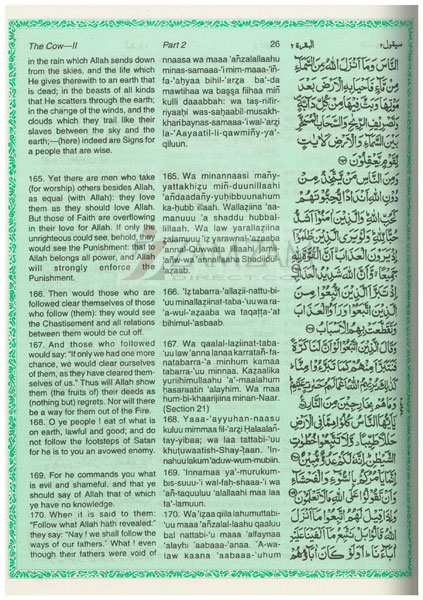 The Cow—II
Part 2
26
البقرة ٢
سيقول ٢
in the rain which Allah sends down
from the skies, and the life which
He gives therewith to an earth that
is dead; in the beasts of all kinds
that He scatters through the earth;
in the change of the winds, and the
clouds which they trail like their
slaves between the sky and the
earth;—(here) indeed are Signs for
a people that are wise.
165. Yet there are men who take
(for worship) others besides Allah,
as equal (with Allah): they love
them as they should love Allah.
But those of Faith are overflowing
in their love for Allah. If only the
unrighteous could see, behold, they
would see the Punishment: that to
Allah belongs all power, and Allah
will strongly enforce the
Punishment.
166. Then would those who are
followed clear themselves of those
who follow (them): they would see
the Chastisement and all relations
between them would be cut off.
167. And those who followed
would say: "If only we had one more
chance, we would clear ourselves
of them, as they have cleared them-
selves of us." Thus will Allah show
them (the fruits of) their deeds as
(nothing but) regrets. Nor will there
be a way for them out of the Fire.
168. O ye people ! eat of what is
on earth, lawful and good; and do
not follow the footsteps of Satan
for he is to you an avowed enemy.
169. For he commands you what
is evil and shameful, and that ye
should say of Allah that of which
ye have no knowledge.
170. When it is said to them:
"Follow what Allah hath revealed."
they say: "Nay ! we shall follow the
ways of our fathers." What ! even
though their fathers were void of
nnaasa wa maaa 'añzalallaahu
minas-samaaa-'i mim-maaa-'iñ-
fa-'aḥyaa bihil-'arẓa ba'-da
mawtihaa wa baṣṣa fiihaa miñ
kulli daaabbah: wa taṣ-riifir-
riyaaḥi was-saḥaabil-musakh-
khari baynas-samaaa-'i wal-'arẓi
la-'Aayaatil-li-qawmiñy-ya'-
qiluun.
165. Wa minannaasi mañy-
yattakhiẓu miñ-duunillaahi
'añdaadañy-yuḥibbuunahum
ka-ḥubi-llaah. Wallaẓiina 'aa-
manuuu 'a shaddu ḥubbal-
lillaah. Wa law yarallaẓiina
ẓalamuuu 'iẓ yarawnal-'aẓaaba
'annal-Quwwata lillaahi jamii-
'añw-wa 'annallaaha Shadiidul-
'aẓaab.
166. 'Iẓ tabarra-'allaẓii-nattu-bi-
'uu minallaẓiinat-taba-'uu wa ra-
'a-wul-'aẓaaba wa taqaṭṭa-'at
bihimul-'asbaab.
167. Wa qaalal-laẓiinat-taba-
'uu law 'anna lanaa karratañ-fa-
natabarra-'a minhum kamaa
tabarra-'uu minnaa. Kazaalika
yuriihimullaahu 'a'-maalahum
ḥasaraatin 'alayhim. Wa maa
hum-bi-khaarijiina minan-Naar.
(Section 21)
168. Yaaa-'ayyuhan-naasu
kuluu mimmaa fil-'arẓi Ḥalaalañ-
tay-yibaa; wa laa tattabi-'uu
khuṭuwaatish-Shay-ṭaan. 'In-
nahuu lakum 'aduw-wum-mubiin.
169. 'Innamaa ya'-murukum-
bis-suuu-'i wal-faḥ-shaaa-'i wa
'añ-taquuluu 'alallaahi maa laa
ta'-lamuun.
170. Wa 'iẓaa qiila lahumuttabi-
'uu maaa 'añzalal-laahu qaaluu
bal nattabi-'u maaa 'alfaynaa
'alayhi 'aabaaa-'anaa. "A-wa-
law kaana 'aabaaa-'uhum
النَّاسَ وَمَآ أَنْزَلَ اللّٰهُ مِنَ السَّمَآءِ
مِنْ مَّآءٍ فَأَحْيَا بِهِ الْأَرْضَ بَعْدَ
مَوْتِهَا وَبَثَّ فِيهَا مِنْ كُلِّ دَآبَّةٍ
وَّتَصْرِيفِ الرِّيٰحِ وَالسَّحَابِ الْمُسَخَّرِ
بَيْنَ السَّمَآءِ وَالْأَرْضِ لَاٰيٰتٍ
لِّقَوْمٍ يَّعْقِلُونَ
وَمِنَ النَّاسِ مَنْ يَّتَّخِذُ مِنْ
دُونِ اللّٰهِ أَنْدَادًا يُّحِبُّونَهُمْ
كَحُبِّ اللّٰهِ وَالَّذِينَ اٰمَنُوٓا أَشَدُّ
حُبًّا لِّلّٰهِ وَلَوْ يَرَى الَّذِينَ
ظَلَمُوٓا إِذْ يَرَوْنَ الْعَذَابَ أَنَّ الْقُوَّةَ لِلّٰهِ
جَمِيعًا وَّأَنَّ اللّٰهَ شَدِيدُ الْعَذَابِ
إِذْ تَبَرَّأَ الَّذِينَ اتُّبِعُوا مِنَ الَّذِينَ
اتَّبَعُوا وَرَأَوُا الْعَذَابَ
وَتَقَطَّعَتْ بِهِمُ الْأَسْبَابُ
وَقَالَ الَّذِينَ اتَّبَعُوا لَوْ أَنَّ لَنَا كَرَّةً
فَنَتَبَرَّأَ مِنْهُمْ كَمَا تَبَرَّءُوا مِنَّا
كَذٰلِكَ يُرِيهِمُ اللّٰهُ أَعْمَالَهُمْ حَسَرٰتٍ عَلَيْهِمْ
وَمَا هُمْ بِخٰرِجِينَ مِنَ النَّارِ
يٰٓأَيُّهَا النَّاسُ كُلُوا مِمَّا فِي الْأَرْضِ
حَلٰلًا طَيِّبًا وَّلَا تَتَّبِعُوا خُطُوٰتِ
الشَّيْطٰنِ إِنَّهُ لَكُمْ عَدُوٌّ مُّبِينٌ
إِنَّمَا يَأْمُرُكُمْ بِالسُّوٓءِ وَالْفَحْشَآءِ
وَأَنْ تَقُولُوا عَلَى اللّٰهِ مَا لَا تَعْلَمُونَ
وَإِذَا قِيلَ لَهُمُ اتَّبِعُوا مَآ أَنْزَلَ اللّٰهُ
قَالُوا بَلْ نَتَّبِعُ مَآ أَلْفَيْنَا عَلَيْهِ
اٰبَآءَنَا أَوَلَوْ كَانَ اٰبَآؤُهُمْ